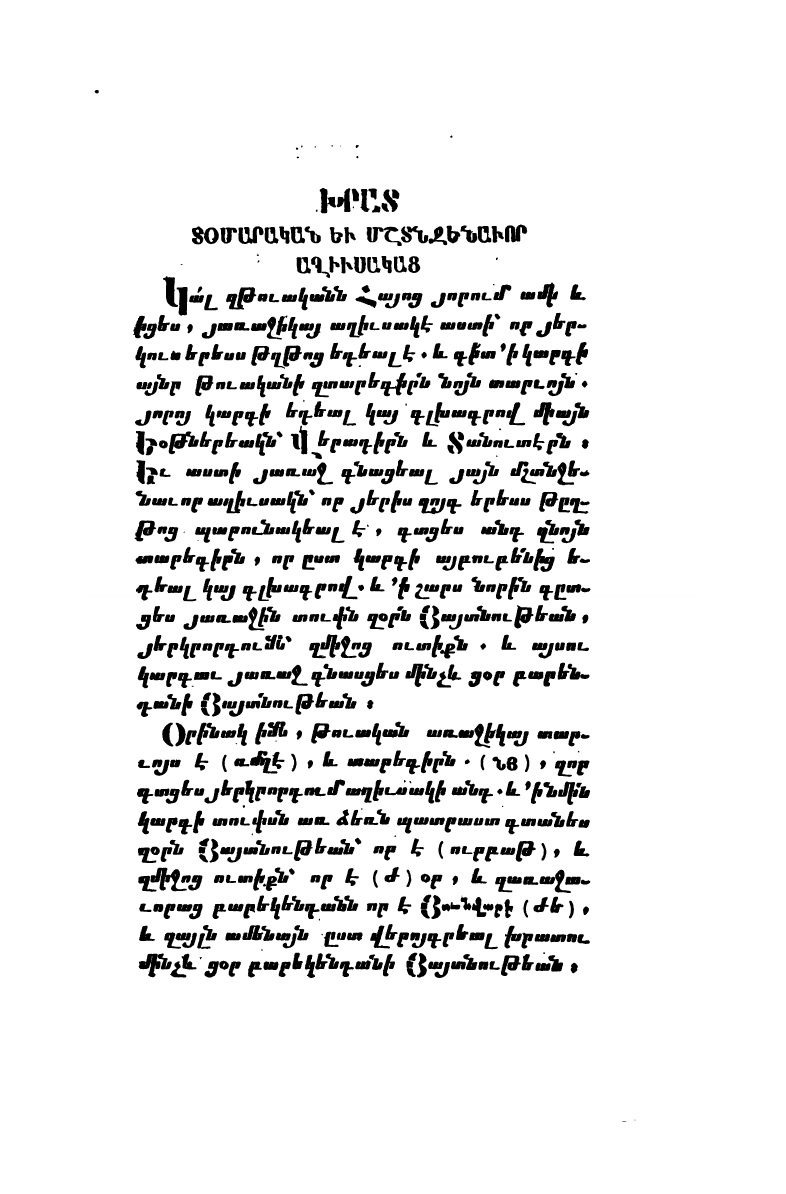 ԽՐԱՏ
ՏՕՄԱՐԱԿԱՆ ԵՒ ՄՇՏՆՋԵՆԱՒՈՐ
ԱՂԻՒՍԱԿԱՑ
Կա՛լ զթուականն Հայոց յորում ամի և
իցես, յառաջիկայ աղիւսակէ աստի՝ որ յեր-
կուս երեսս թղթոց եդեալ է. և գի՛տ ՚ի կարգի
այնր թուականի զտարեգիրն նոյն տարւոյն.
յորոյ կարգի եդեալ կայ գլխագրով միայն
Եօթներեակն՝ Վերադիրն և Տանուտէրն։
Եւ աստի յառաջ գնացեալ յայն մշտնջե-
նաւոր աղիւսակն՝ որ յերիս զոյգ երեսս թըղ-
թոց պարունակեալ է, գտցես անդ զնոյն
տարեգիրն, որ ըստ կարգի այբուբենից ե-
դեալ կայ գլխագրով. և ՚ի շարս նորին գըտ-
ցես յառաջին տուփն զօրն Յայտնութեան,
յերկրորդումն՝ զմիջոց ուտիքն. և այսու
կարգաւ յառաջ գնասցես մինչև ցօր բարեն-
դանի Յայտնութեան։
Օրինակ իմն, թուական առաջիկայ տար-
ւոյս է (ռմղէ), և տարեգիրն. (ՆՑ), զոր
գտցես յերկրորդում աղիւսակի անդ. և ՚ի նմին
կարգի տուփսն առ ձեռն պատրաստ գտանես
զօրն Յայտնութեան՝ որ է (ուրբաթ), և
զմիջոց ուտիքն՝ որ է (Ժ) օր, և զառաջա-
ւորաց բարեկենդանն որ է Յունվարի (ժե),
և զայլն ամենայն ըստ վերոյգրեալ խրատու
մինչև ցօր բարեկենդանի Յայտնութեան։